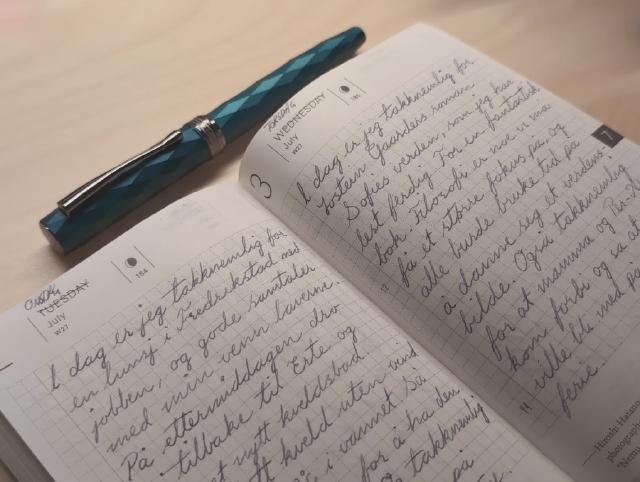 ONSDAG
TUESDAY
July
W27
184
I dag er jeg takknemlig for
en lunsj i Fredrikstad med
jobben, og gode samtaler
med min venn Laverne.
På ettermiddagen dro
tilbake til Erte og
et nytt kveldsbad.
tt kveld uten vind
i vannet så
for å ha den
takknemlig
på
TORSDAG
WEDNESDAY
July
W27
185
3
7
I dag er jeg takknemlig for
Jostein Gaarders roman
Sofies verden, som jeg har
lest ferdig. For en fantastisk
bok. Filosofi er noe vi må
få et større fokus på, og
alle burde bruke tid på
å danne seg et verdens-
bilde. Også takknemlig
for at mamma og
kom forbi og sa at
ville bli med på
ferie.
12
— Hiroshi
photograph
"Nemu